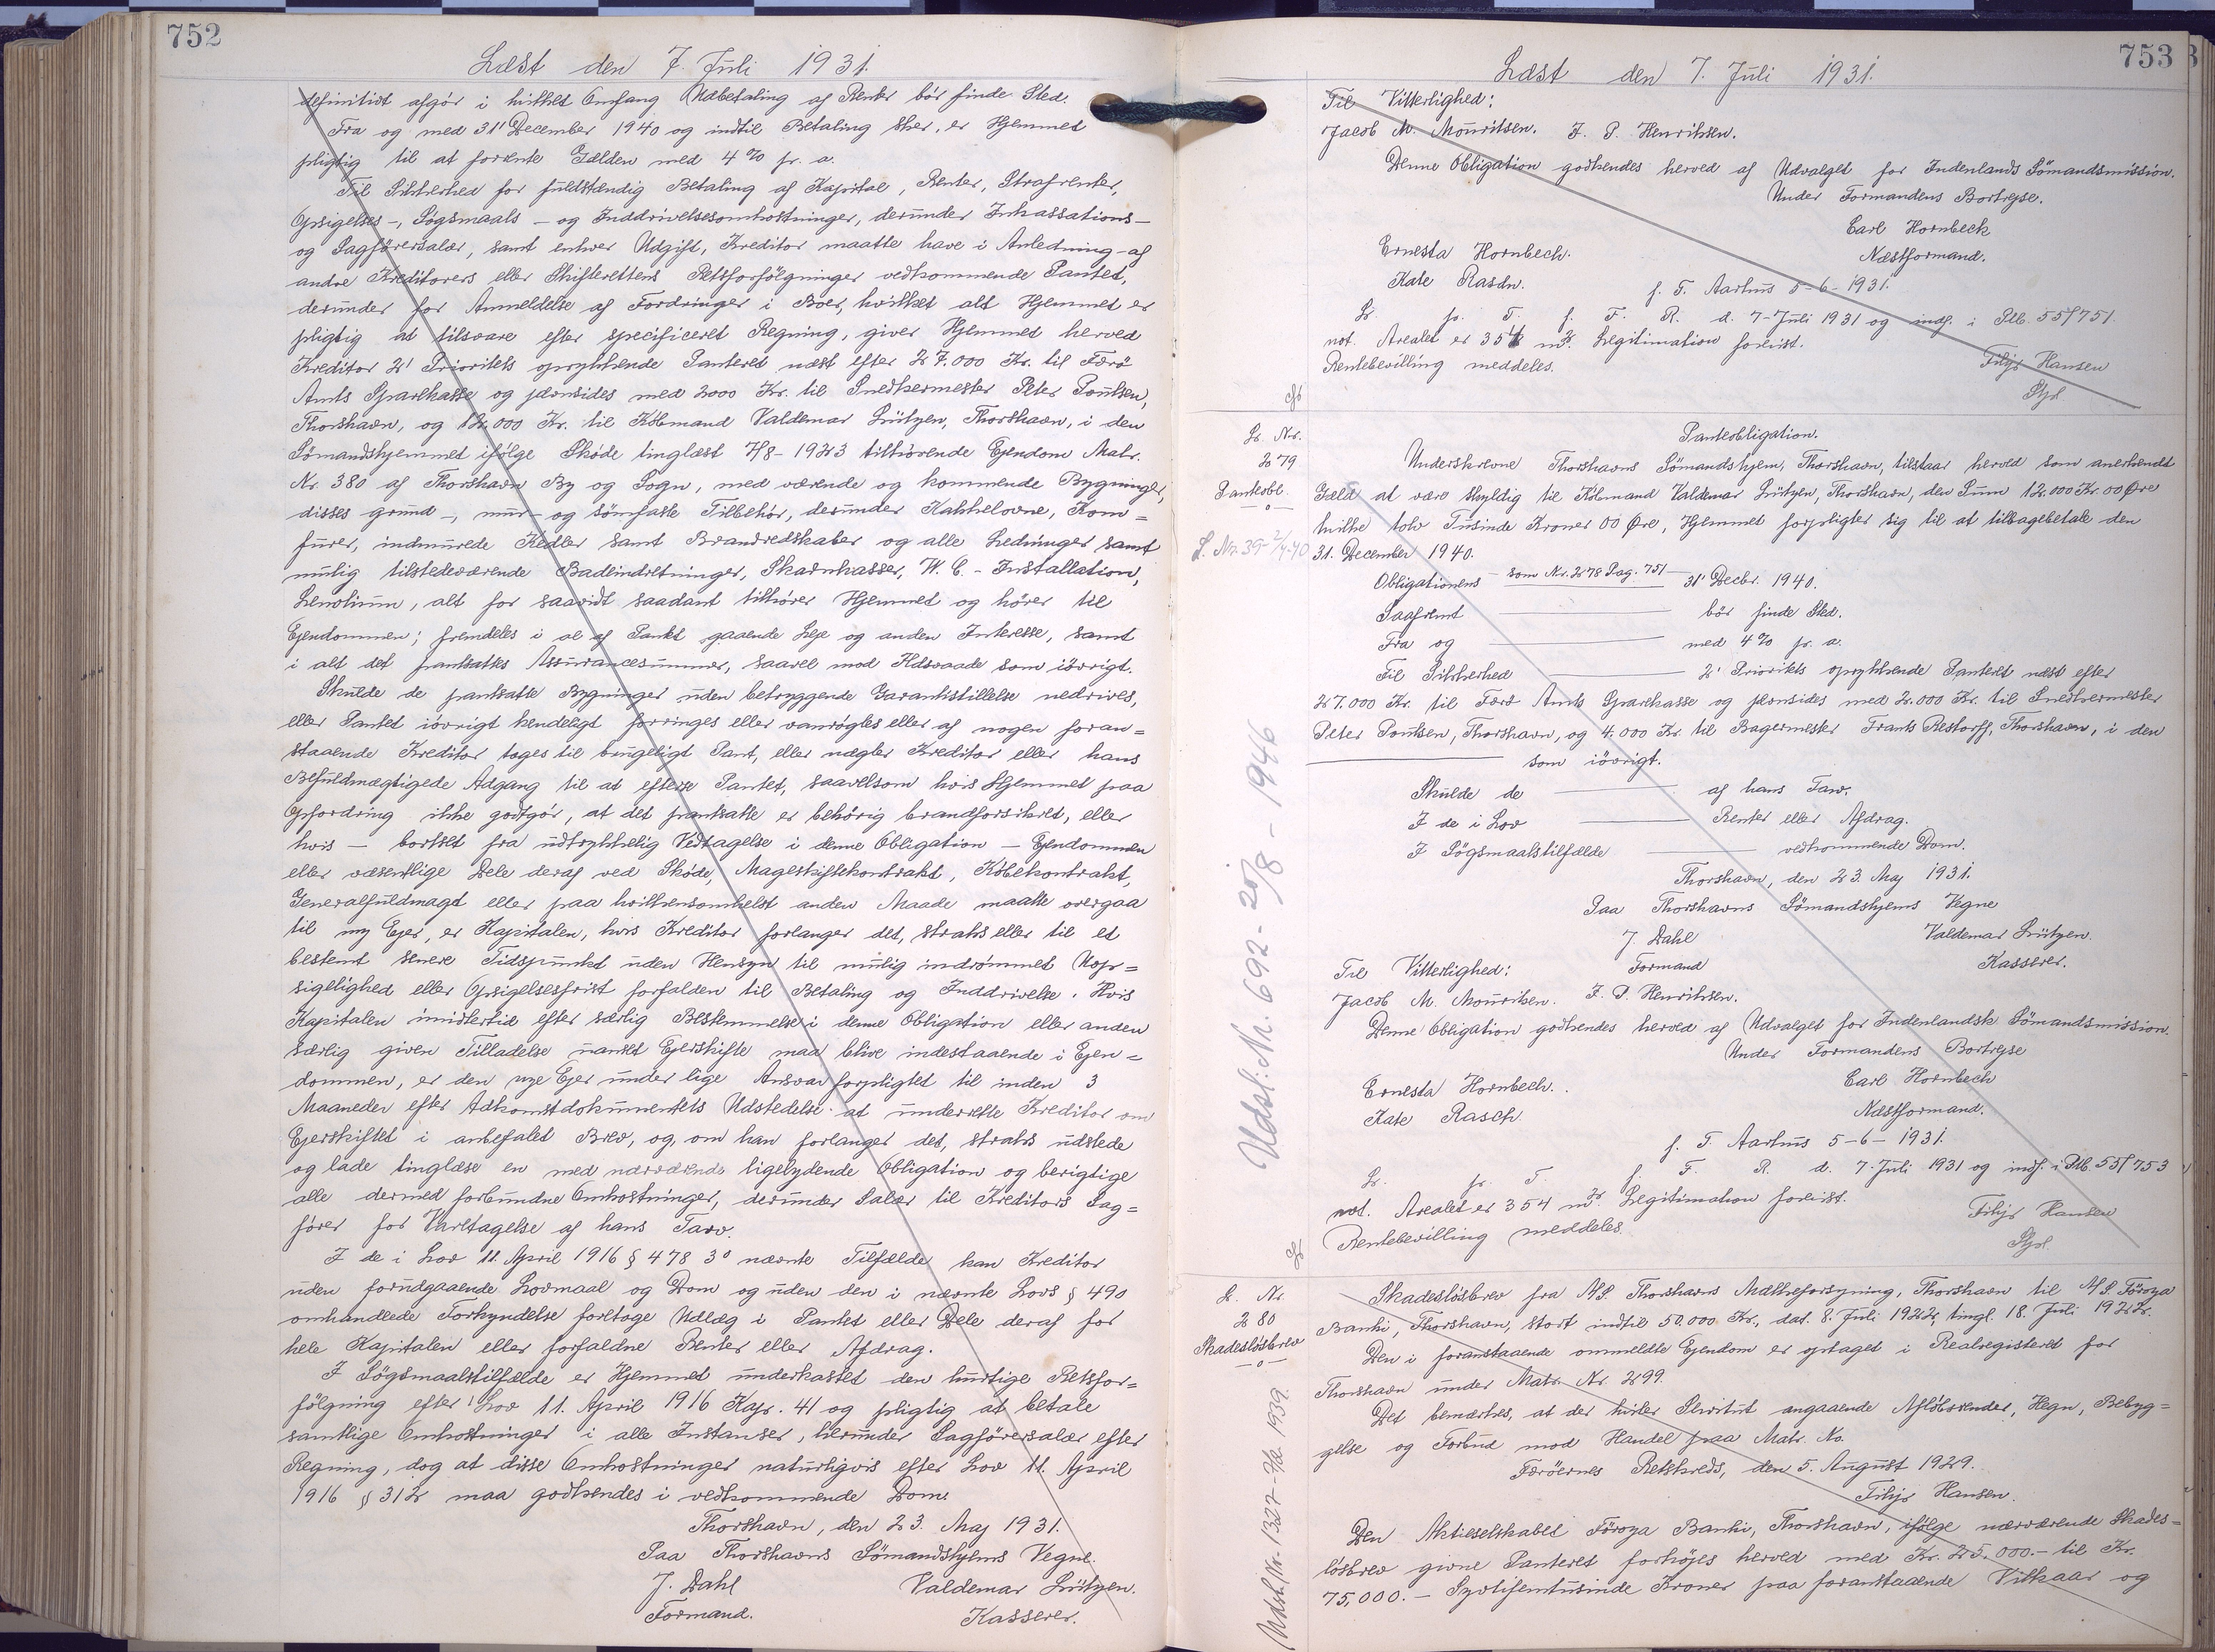 752
Læst den 7. Juli 1931.
definitivt afgör i hvilket Omfang Udbetaling af Renter bör finde Sted.
Fra og med 31' December 1940 og indtil Betaling sker, er Hjemmet
pligtig til at forrente Gælden med 4 % pr. a.
Til Sikkerhed for fuldstændig Betaling af Kapital, Renter, Strafrenter,
Opsigelses-, Søgsmaals- og Inddrivelsesomkostninger, derunder Inkassations-
og Sagførersalær, samt enhver Udgift, Kreditor maatte have i Anledning af
andre Kreditorers eller Skifterettens Retsforfølgninger vedkommende Pantet,
derunder for Anmeldelse af Fordringer i Boer, hvilket alt Hjemmet er
pligtig at tilsvare efter specificeret Regning, giver Hjemmet herved
Kreditor 2' Prioritets oprykkende Panteret næst efter 27.000 Kr. til Færö
Amts Sparekasse og jævnsides med 2000 Kr. til Snedkermester Peter Poulsen,
Thorshavn, og 12.000 Kr. til Købmand Valdemar Lützen, Thorshavn, i den
Sömandshjemmet ifølge Skøde tinglæst 7/8-1923 tilhörende Ejendom Matr.
Nr. 380 af Thorshavn By og Sogn, med værende og kommende Bygninger,
disses grund-, mur- og sömfaste Tilbehör, derunder Kakkelovne, Kom=
furer, indmurede Kedler samt Brandredskaber og alle Ledninger samt
mulig tilstedeværende Badeindretninger, Skarnkasser, W. C.-Installation,
Lenolium, alt for saavidt saadant tilhører Hjemmet og hører til
Ejendommen; fremdeles i al af Pantet gaaende Leje og anden Interesse, samt
i alt det pantsattes Assurancesummer, saavel mod Ildsvaade som iövrigt.
Skulde de pantsatte Bygninger uden betryggende Garantistillelse nedrives,
eller Pantet iövrigt kendeligt forringes eller vanrögtes eller af nogen foran=
staaende Kreditor tages til brugeligt Pant, eller nægter Kreditor eller hans
Befuldmægtigede Adgang til at efterse Pantet, saavelsom hvis Hjemmet paa
Opfordring ikke godtgör, at det pantsatte er behörig brandforsikret, eller
hvis - bortset fra udtrykkelig Vedtagelse i denne Obligation - Ejendommen
eller væsentlige Dele deraf ved Skøde, Mageskiftekontrakt, Købekontrakt,
Generalfuldmagt eller paa hvilkensomhelst anden Maade maatte overgaa
til ny Ejer, er Kapitalen, hvis Kreditor forlanger det, straks eller til et
bestemt senere Tidspunkt uden Hensyn til mulig indrömmet Uop=
sigelighed eller Opsigelsesfrist forfalden til Betaling og Inddrivelse. Hvis
Kapitalen imidlertid efter særlig Bestemmelse i denne Obligation eller anden
særlig given Tilladelse uanset Ejerskifte maa blive indestaaende i Ejen=
dommen, er den nye Ejer under lige Ansvar forpligtet til inden 3
Maaneder efter Adkomstdokumentets Udstedelse at underrette Kreditor om
Ejerskiftet i anbefalet Brev, og, om han forlanger det, straks udstede
og lade tinglæse en med nærværende ligelydende Obligation og berigtige
alle dermed forbundne Omkostninger, derunder Salær til Kreditors Sag=
fører for Varetagelse af hans Tarv.
I de i Lov 11. April 1916 § 478 3° nævnte Tilfælde kan Kreditor
uden forudgaaende Lovmaal og Dom og uden den i nævnte Lovs § 490
omhandlede Forkyndelse foretage Udlæg i Pantet eller Dele deraf for
hele Kapitalen eller forfaldne Renter eller Afdrag.
I Søgsmaalstilfælde er Hjemmet underkastet den hurtige Retsfor=
følgning efter Lov 11. April 1916 Kap. 41 og pligtig at betale
samtlige Omkostninger i alle Instanser, herunder Sagførersalær efter
Regning, dog at disse Omkostninger naturligvis efter Lov 11. April
1916 § 312 maa godkendes i vedkommende Dom.
Thorshavn, den 23. Maj 1931.
Paa Thorshavns Sömandshjems Vegne.
J. Dahl Valdemar Lützen.
Formand. Kasserer.
753
Læst den 7. Juli 1931.
Til Vitterlighed:
Jacob M. Mouritsen. J. P. Henriksen.
Denne Obligation godkendes herved af Udvalget for Indenlands Sömandsmission.
Under Formandens Bortrejse.
Carl Hornbeck
Ernesta Hornbech. Næstformand.
Kate Rasch. p. T. Aarhus 5-6-1931.
L. pr. T. f. F. R. d. 7. Juli 1931 og indf. i Plb. 55/751.
not. Arealet er 354 m². Legitimation forevist.
Rentebevilling meddeles. Filip Hansen
Stpl.
L. Nr.
279
Panteobl.
Panteobligation.
Underskrevne Thorshavns Sömandshjem, Thorshavn, tilstaar herved som anerkendt
Gæld at være skyldig til Købmand Valdemar Lützen, Thorshavn, den Sum 12.000 Kr. 00 Øre
hvilke tolv Tusinde Kroner 00 Øre, Hjemmet forpligter sig til at tilbagebetale den
31. December 1940.
Obligationens som Nr. 278 Pag. 751 31' Decbr. 1940.
Saafremt bör finde Sted.
Fra og med 4 % pr. a.
Til Sikkerhed 2' Prioritets oprykkende Panteret næst efter
27.000 Kr. til Færö Amts Sparekasse og jævnsides med 2.000 Kr. til Snedkermester
Peter Poulsen, Thorshavn, og 4.000 Kr. til Bagermester Frants Restorff, Thorshavn, i den
som iövrigt.
Skulde de af hans Tarv.
I de i Lov Renter eller Afdrag.
I Søgsmaalstilfælde vedkommende Dom.
Thorshavn, den 23. Maj 1931.
Paa Thorshavns Sömandshjems Vegne
J. Dahl Valdemar Lützen.
Til Vitterlighed: Formand Kasserer.
Jacob M. Mouritsen. J. P. Henriksen.
Denne Obligation godkendes herved af Udvalget for Indenlandsk Sömandsmission.
Under Formandens Bortrejse
Ernesta Hornbech. Carl Hornbech
Kate Rasch Næstformand.
p. T. Aarhus 5-6-1931.
L. pr. T. f. F. R. d. 7. Juli 1931 og indf. i Plb. 55/753
not. Arealet er 354 m². Legitimation forevist.
Rentebevilling meddeles. Filip Hansen
Stpl.
Udsl. Nr. 692 - 20/8 - 1946
L. Nr.
280
Skadesløsbrev
Skadesløsbrev fra A/S. Thorshavns Mælkeforsyning, Thorshavn til A/S. Föroya
Banki, Thorshavn, stort indtil 50.000 Kr., dat. 8. Juli 1922, tingl. 18. Juli 1922.
Den i foranstaaende ommeldte Ejendom er optaget i Realregisteret for
Thorshavn under Matr. Nr. 299.
Det bemærkes, at der hviler Servitut angaaende Afløbsrender, Hegn, Bebyg=
gelse og Forbud mod Handel paa Matr. No.
Færöernes Retskreds, den 5. August 1929.
Filip Hansen.
Den Aktieselskabet Föroya Banki, Thorshavn, ifølge nærværende Skades=
løsbrev givne Panteret forhøjes herved med Kr. 25.000.- til Kr.
75.000.- Syvtifemtusinde Kroner paa foranstaaende Vilkaar og